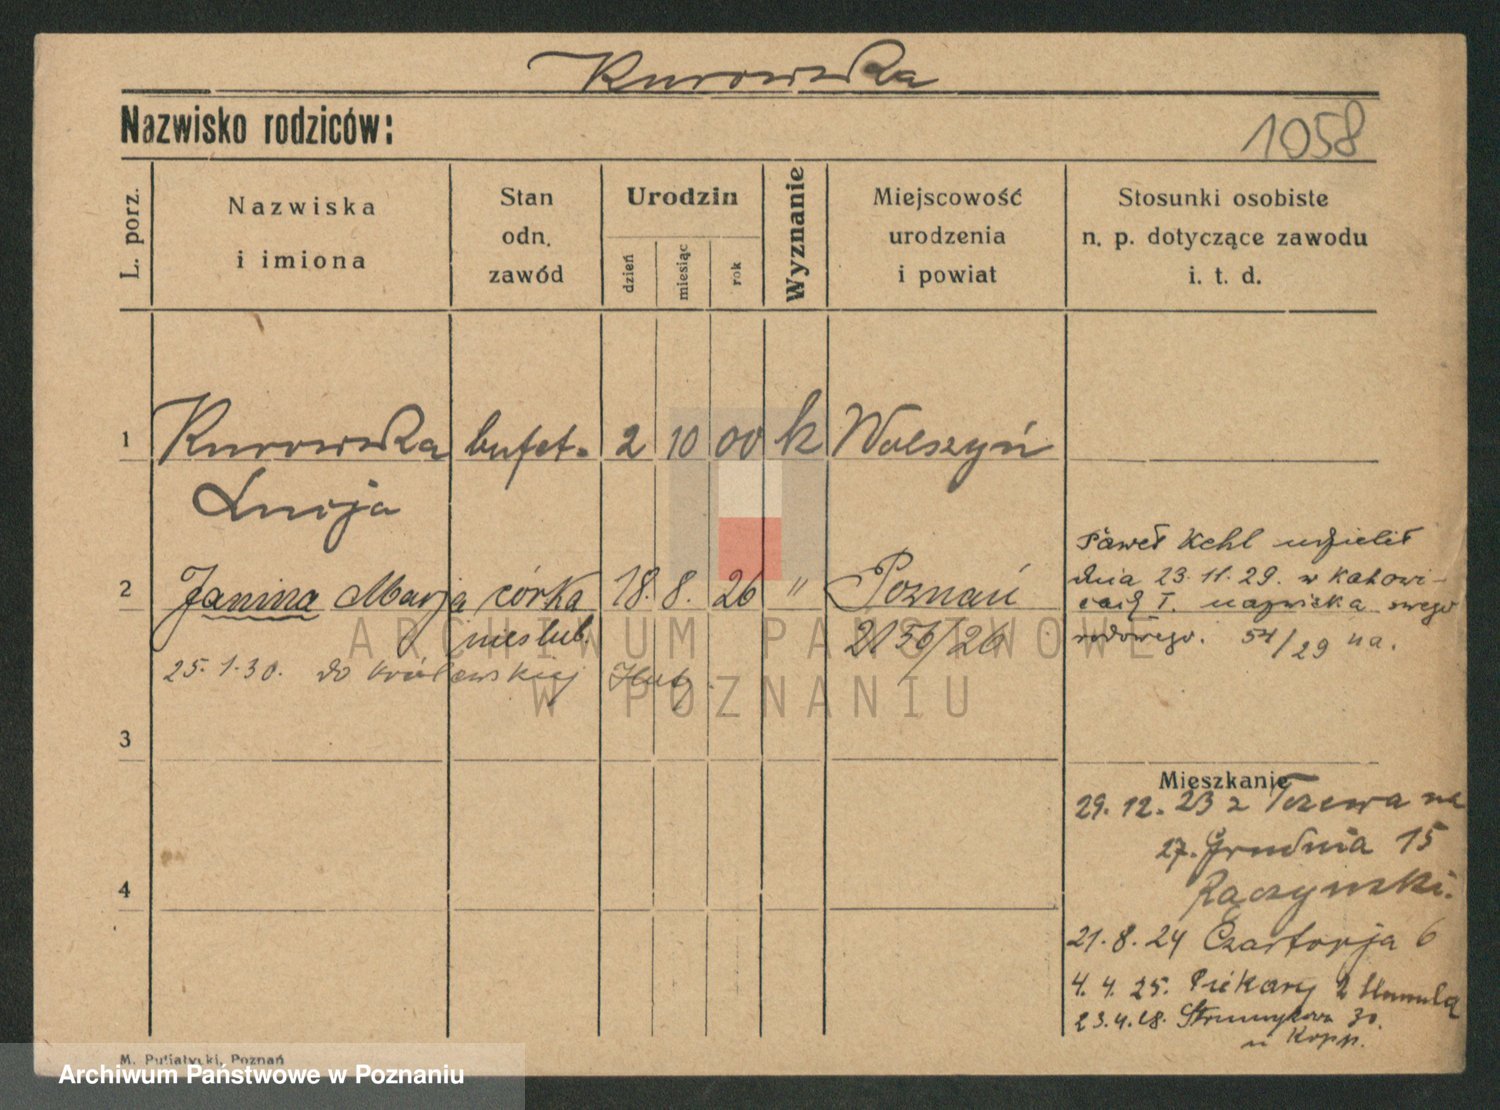 Kurowska
Nazwisko rodziców:
1058
L. porz.
Nazwiska
i imiona
Stan
odn.
zawód
Urodzin
dzień
miesiąc
rok
Wyznanie
Miejscowość
urodzenia
i powiat
Stosunki osobiste
n. p. dotyczące zawodu
i. t. d.
1 Kurowska bufet. 2 10 00 k Wolsztyń
Lucja
Paweł Kehl udzielił
2 Janina Marja córka 18. 8. 26 " Poznań
dnia 23.11.29. w Katowi-
cach T. nazwiska swego
nieślub. 2156/26
rodowego. 54/29 na.
25.1.30. do Królewskiej Huty.
ARCHIWUM PAŃSTWOWE
W POZNANIU
3
Mieszkanie
29.12.23 z Tczewa na
27. Grudnia 15
Rączyński.
4
21.8.24 Czartorja 6
4.4.25. Piekary 2
23.4.28. Strumykowa 30.
u Kopp.
M. Putiatycki, Poznań
Archiwum Państwowe w Poznaniu